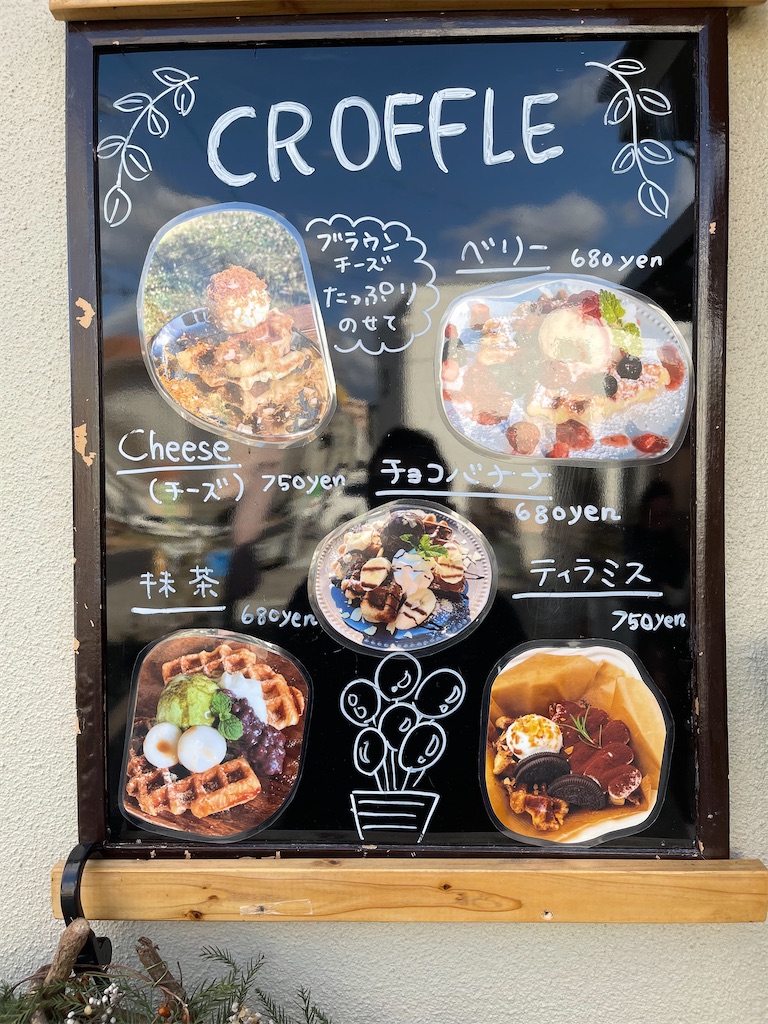 CROFFLE
ブラウン
チーズ
たっぷり
のせて
ベリー 680yen
Cheese
(チーズ) 750yen
チョコバナナ
680yen
抹茶
680yen
ティラミス
750yen